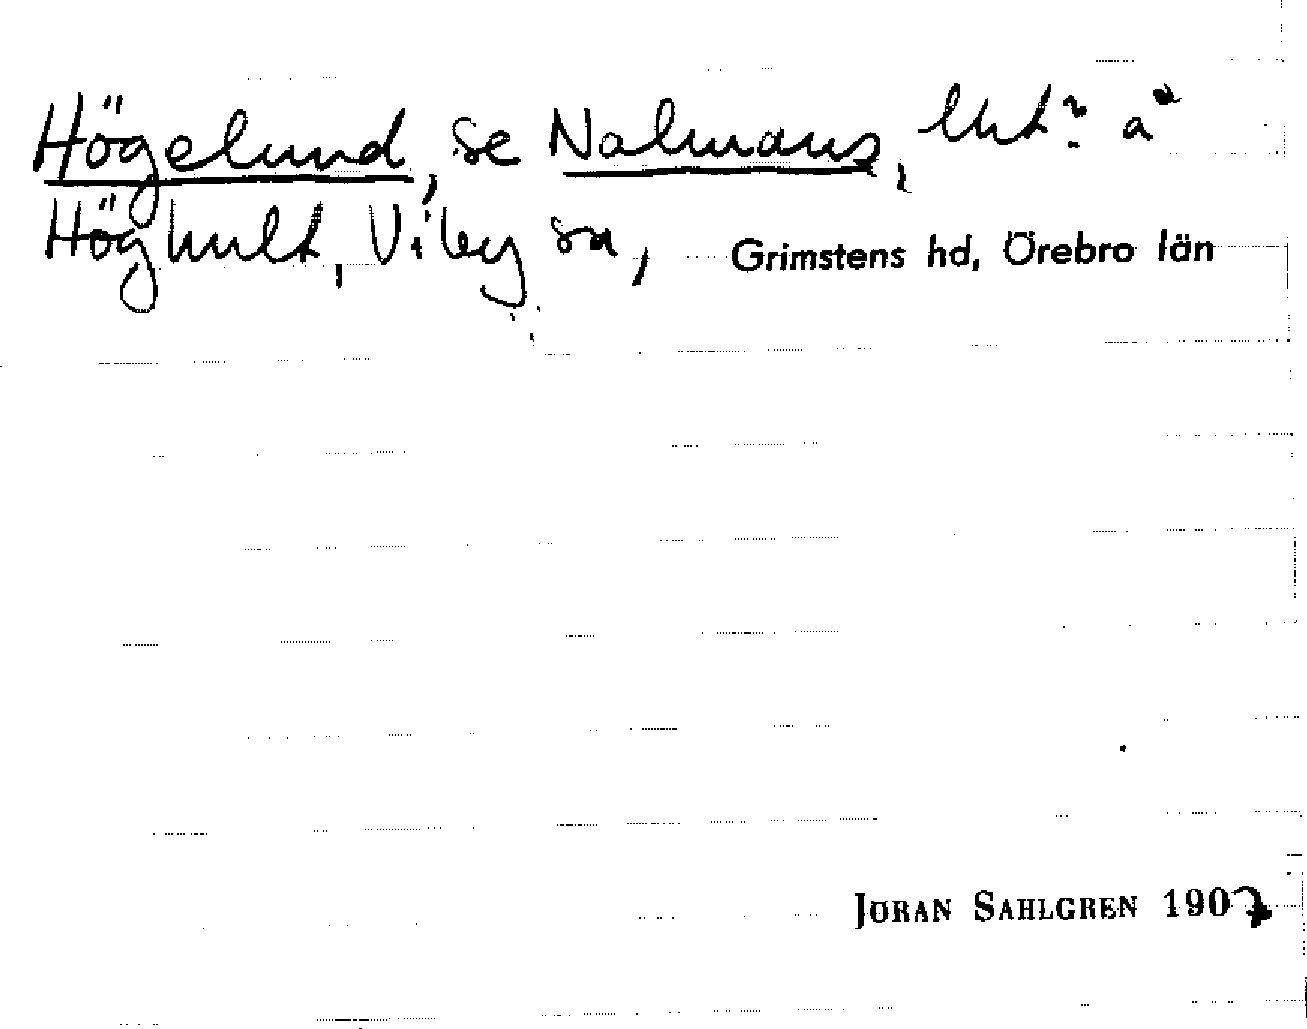 Högelund, se Nalmans, lht? å
Höghult, Viby sn, Grimstens hd, Örebro län
JÖRAN SAHLGREN 1907